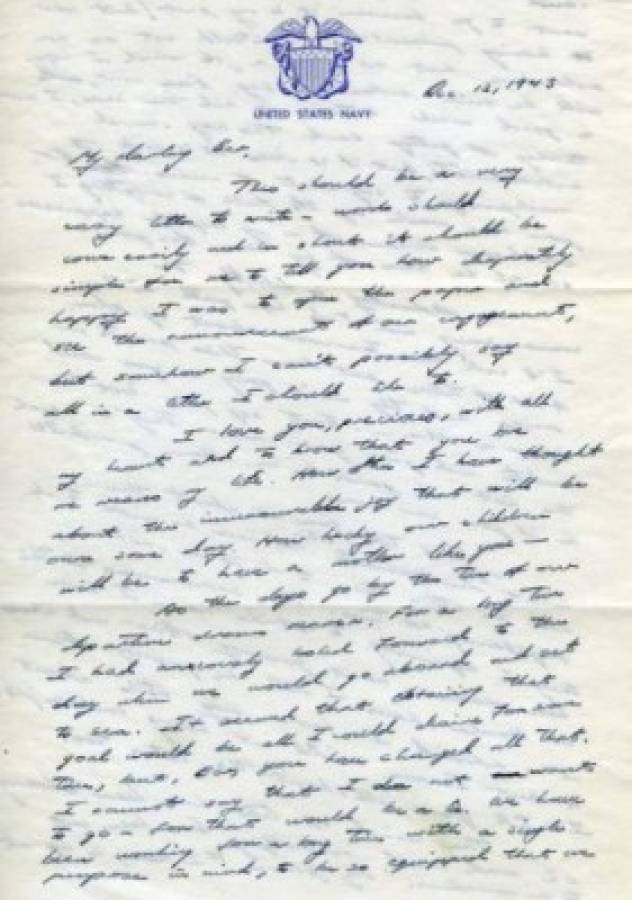 UNITED STATES NAVY
12, 1943
My darling Bev,
This should be a very
easy letter to write - words should
come easily and in short it should be
simple for me to tell you how desperately
happy I was to the papers and
see the announcement of our engagement,
but somehow I can't possibly say
all in a letter I should like to.
I love you, precious, with all
my heart and to know that you
life. How often I have thought
about the immeasurable joy that will be
ours some day. How lucky our children
will be to have a mother like you -
As the days go by the time of our
separation draws nearer. For a long time
I had anxiously looked forward to the
day when we would go aboard and set
to sea. It seemed that attaining that
goal would be all I would desire for some
time, but, Bev, you have changed all that.
I cannot say that I do not want
to go - for that would be a lie. We have
been working for a long time with a single
purpose in mind, to be so equipped that we